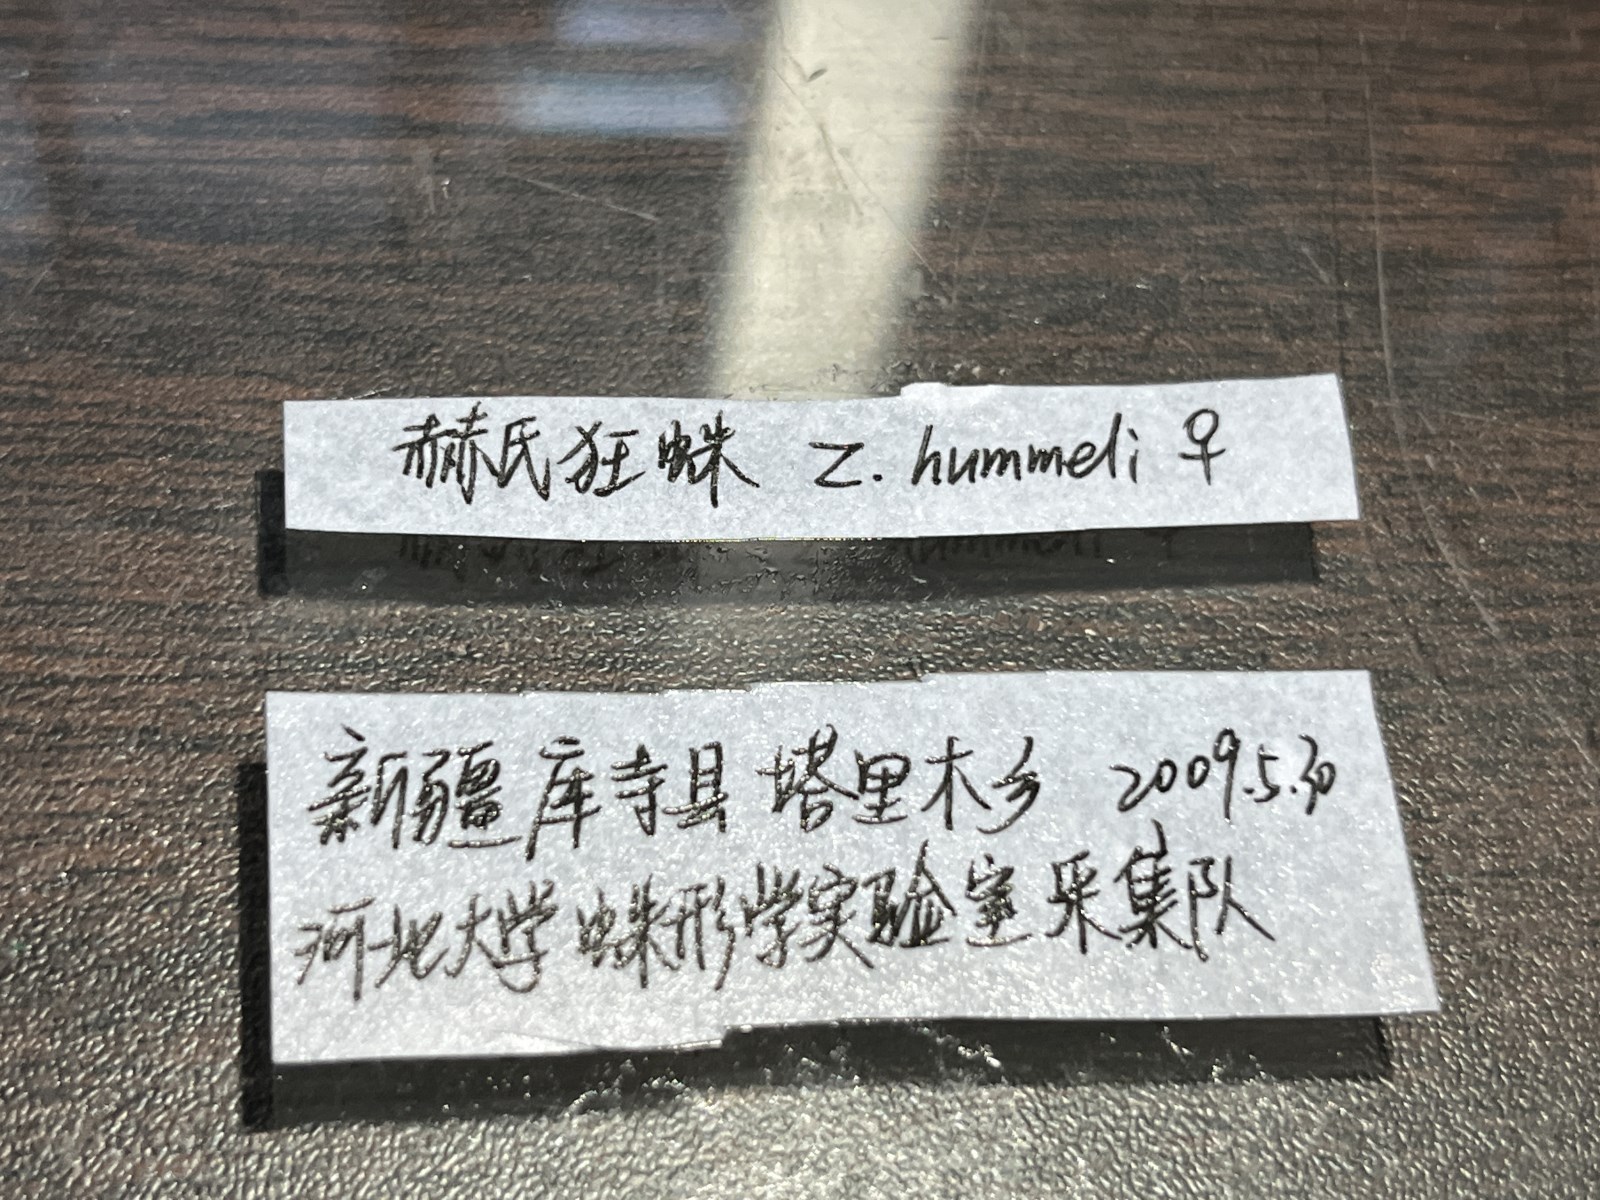 赫氏狂蛛 Z. hummeli ♀
新疆库寺县 塔里木乡 2009.5.30
河北大学 蛛形学实验室采集队